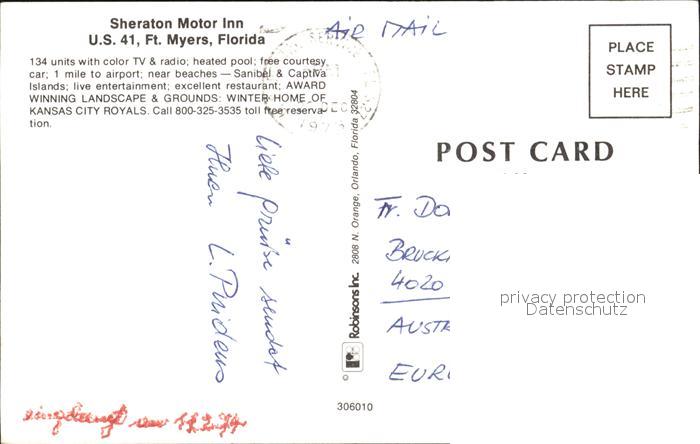 Sheraton Motor Inn
U.S. 41, Ft. Myers, Florida
134 units with color TV & radio; heated pool; free courtesy
car; 1 mile to airport; near beaches — Sanibel & Captiva
Islands; live entertainment; excellent restaurant; AWARD
WINNING LANDSCAPE & GROUNDS: WINTER HOME OF
KANSAS CITY ROYALS. Call 800-325-3535 toll free reserva-
tion.
AIR MAIL
PLACE
STAMP
HERE
POST CARD
Liebe Grüße sendet
Ihnen L.
Robinsons Inc. 2808 N. Orange, Orlando, Florida 32804
Fr. Do
BRUCK
4020
AUST
EUR
privacy protection
Datenschutz
306010